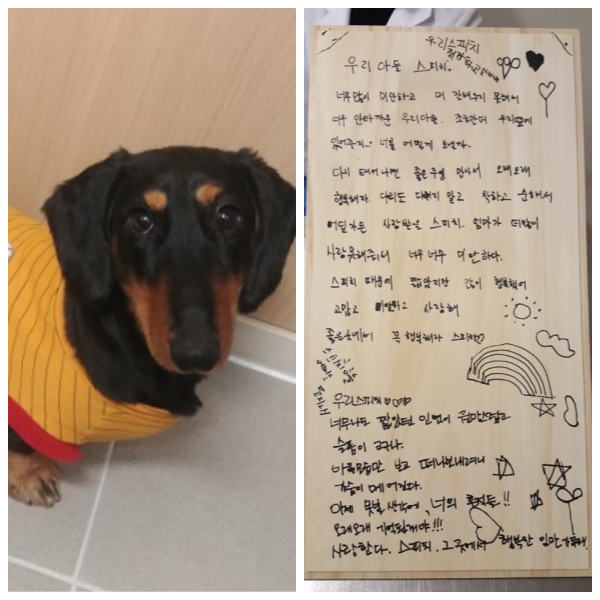 우리스피치
우리 아들 스피치.
너무많이 미안하고 더 잘해주지 못해서
너무 안타까운 우리아들. 조금만더 우리옆에
있어주지.. 너를 어떻게 보낼까.
다시 태어나면 좋은주인 만나서 오래오래
행복해라 다리도 다치지 말고 착하고 순해서
어딜가든 사랑받을 스피치. 엄마가 더많이
사랑못해주어서 너무 너무 미안하다.
스피치 때문에 짧았지만 많이 행복했어
고맙고 미안하고 사랑해
좋은곳에서 꼭 행복해라 스피치♡
우리스피치 ♡♡♡
너무나도 짧았던 인연이 원망스럽고
슬픔이 크구나.
아픈모습만 보고 떠나보내려니
가슴이 메어진다.
이제 못볼 생각에, 너의 흔적들!!
오래오래 기억할게야!!!
사랑한다. 스피치. 그곳에서 행복한 일만 가득해.